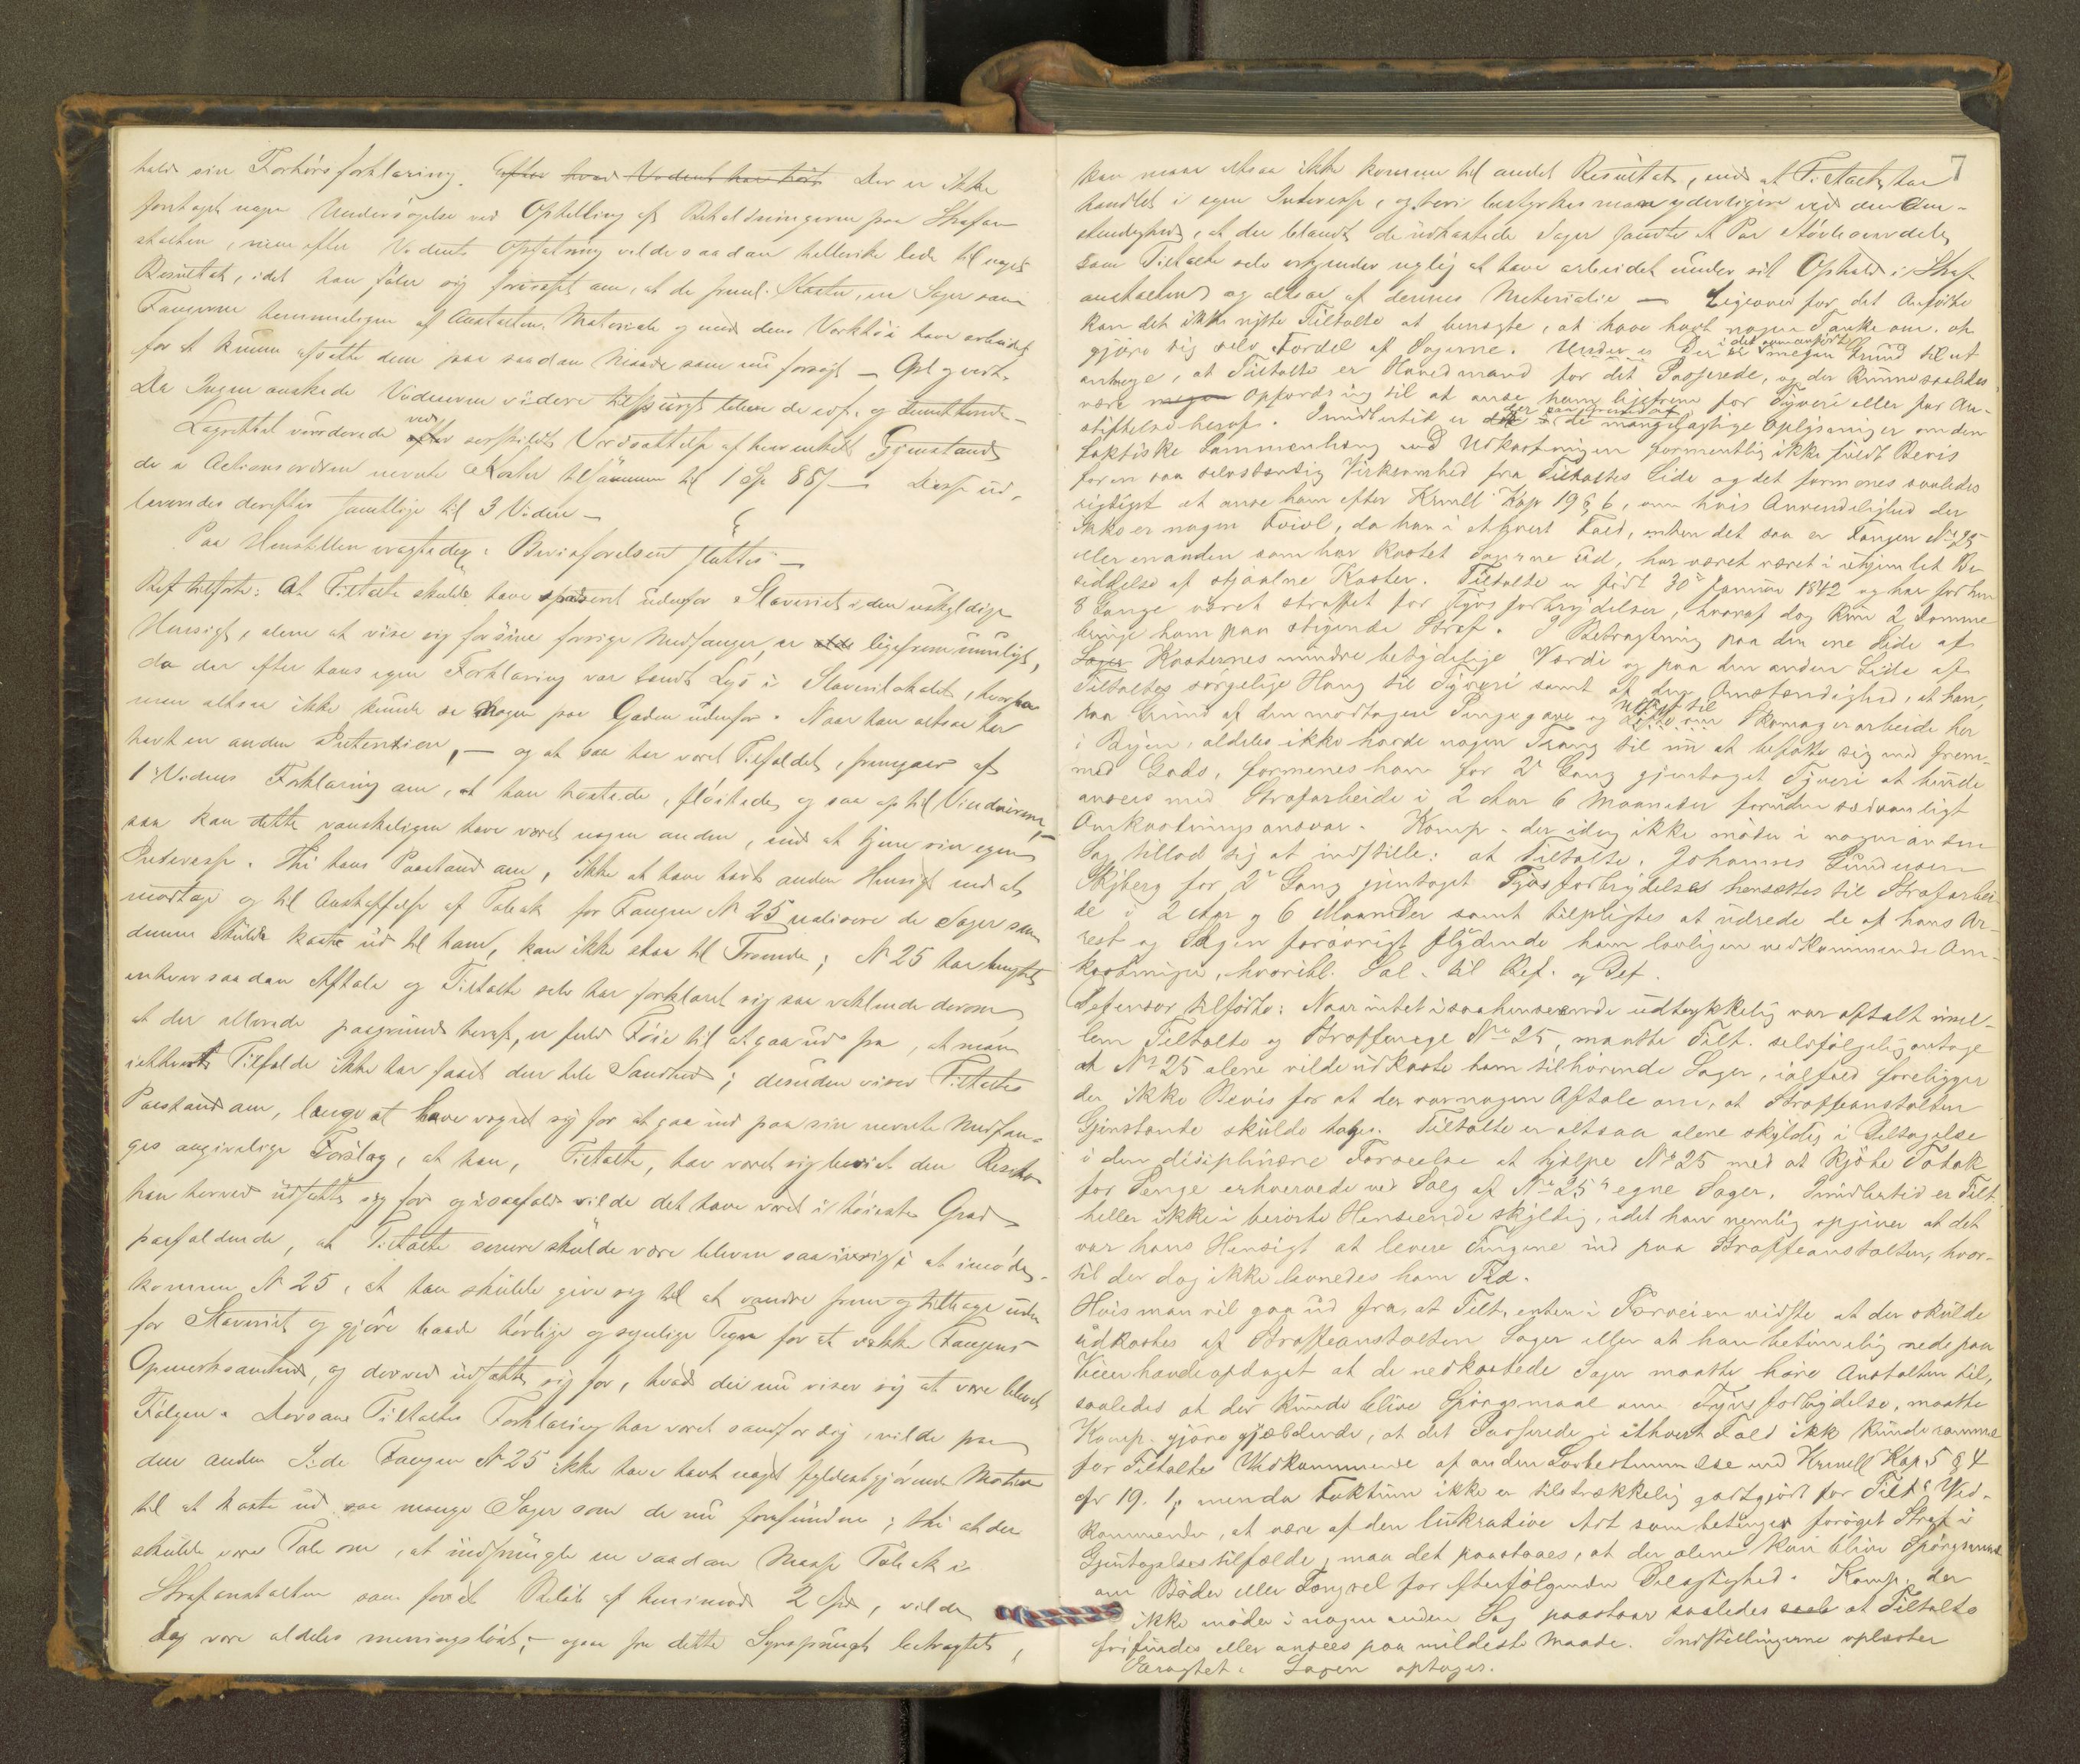 holdt sin Forhørsforklaring. Efter hvad Vidnet har hørt Der er ikke
foretaget nogen Undersøgelse ved Optælling af Beholdningerne paa Strafan-
stalten, men efter Vidnets Opfatning vilde saadan hellerikke lede til noget
Resultat, idet han føler sig forvisset om, at de freml. Koster, er Sager som
Fangerne hemmeligen af Anstaltens Materiale og med dens Verktøi have arbeidet
for at kunne afsætte dem paa saadan Maade som nu forsøgt — Opl. vedt.
Da Ingen ønskede Vidnerne videre tilspurgt bleve de edf. og dimitterede —
Lagrettet vurderede efter ved særskildt Værdsættelse af hver enkelt Gjenstand
de i Actionsordren nevnte Koster tilsammen til 1 Sp 88 β — Disse ud-
leveredes derefter samtlige til 3 Vidne —
Paa Henstillen vragtedes: Bevisførelsen sluttes —
Ref. tilførte: At Tiltalte skulde have spadseret udenfor Slaveriet i den uskyldige
Hensigt, alene at vise sig for sine forrige Medfanger, er ligefrem umuligt,
da der efter hans egen Forklaring var tændt Lys i Slaverilokalet, hvorfra
man altsaa ikke kunde se Nogen paa Gaden udenfor. Naar han altsaa har
havt en anden Intention, — og at saa har været Tilfældet, fremgaar af
1 Vidnes Forklaring om, at han hostede, fløitede og saa op til Vinduerne, —
saa kan dette vanskeligen have været nogen anden, end at tjene sin egen
Interesse. Thi hans Paastand om, ikke at have havt anden Hensigt end at
modtage og til Anskaffelse af Tobak for Fangen N 25 realisere de Sager som
denne skulde kaste ud til ham, kan ikke staa til Troende; N 25 har benegtet
enhver saadan Aftale og Tiltalte selv har forklaret sig saa vaklende derom
at der allerede paagrund heraf, er fuld Føie til at gaa ud fra, at man
i ethvert Tilfælde ikke har faaet den hele Sandhed; desuden viser Tiltaltes
Paastand om, længe at have vegret sig for at gaa ind paa sin nevnte Medfan-
ges angivelige Forslag, at han, Tiltalte, har været sig bevidst den Risiko
han herved udsatte sig for og isaafald vilde det have været i høieste Grad
paafaldende, at Tiltalte senere skulde være bleven saa ivrig i at imøde-
komme N 25, at han skulde give sig til at vandre frem og tilbage uden-
for Slaveriet og gjøre baade hørlige og synlige Tegn for at vække Fangens
Opmerksomhed, og derved udsætte sig for, hvad der nu viser sig at være blevet
Følgen. Dersom Tiltaltes Forklaring har været sandfærdig, vilde paa
den anden Side Fangen N 25 ikke have havt noget fyldestgjørende Motiv
til at kaste ud saa mange Sager som de nu forefundne; thi at der
skulde være Tale om, at indsmugle en saadan Masse Tobak i
Strafanstalten som for et Beløb af henimod 2 Spd, vilde
dog være aldeles meningsløst; — ogsaa fra dette Synspunkt betragtet,
7
kan man altsaa ikke komme til andet Resultat, end at Tiltalte har
handlet i egen Interesse, og heri bestyrkes man yderligere ved den Om-
stændighed, at der blandt de udkastede Sager fandtes et Par Støvleoverdeler
som Tiltalte selv erkjender nylig at have arbeidet under sit Ophold i Straf-
anstalten og altsaa af dennes Materialie — Ligeoverfor det Anførte
kan det ikke nytte Tiltalte at benegte, at have havt nogen Tanke om at
gjøre sig selv Fordel af Sagerne. Der er i det ovenanførte megen Grund til at
antage, at Tiltalte er Hovedmand for det Passerede, og der kunne saaledes
være Opfordring til at anse ham ligefrem for Tyveri eller for An-
stiftelse heraf. Imidlertid er der paa Grund af de mangelagtige Oplysninger om den
faktiske Sammenhæng med Udkastningen formentlig ikke fuldt Bevis
for en saa selvstændig Virksomhed fra Tiltaltes Side og det formenes saaledes
rigtigst at anse ham efter Krmll Kap 19 § 6, om hvis Anvendelighed der
ikke er nogen Tvivl, da han i ethvert Fald, enten det saa er Fangen No 25
eller en anden som har kastet Sagerne ud, har været i uhjemlet Be-
siddelse af stjaalne Koster. Tiltalte er født 30te Januar 1842 og har forhen
8 Gange været straffet for Tyvsforbrydelser, hvoraf dog kun 2 Domme
bringe ham paa stigende Straf. I Betragtning paa den ene Side af
Sager Kosternes mindre betydelige Værdi og paa den anden Side af
Tiltaltes sørgelige Hang til Tyveri samt af den Omstændighed, at han,
paa Grund af den modtagne Pengegave og Udsigt til Skomagerarbeide her
i Byen, aldeles ikke havde nogen Trang til at befatte sig med frem-
med Gods, formenes han for 2 Gang gjentaget Tyveri at burde
ansees med Strafarbeide i 2 Aar 6 Maaneder foruden sædvanligt
Omkostningsansvar. Komp. der idag ikke møder i nogen anden
Sag tillod sig at indstille: at Tiltalte, Johannes Gundersen
Skjberg for 2 Gang gjentaget Tyvsforbrydelse hensættes til Strafarbei-
de i 2 Aar og 6 Maaneder samt tilpligtes at udrede de af hans Ar-
rest og Sagen forøvrigt flydende ham lovligen vedkommende Om-
kostninger, hvoribl. Sal. til Ref. og Def.
Defensor tilførte: Naar intet i saahenseende udtrykkelig var aftalt imel-
lem Tiltalte og Straffange No 25, maatte Tilt. selvfølgelig antage
at No 25 alene vilde udkaste ham tilhørende Sager, ialfald foreligger
der ikke Bevis for at der var nogen Aftale om, at Straffeanstalten
Gjenstande skulde tages. Tiltalte er altsaa alene skyldig i Deltagelse
i den disiplinære Forseelse at hjælpe No 25 med at kjøbe Tobak
for Penge erhvervede ved Salg af No 25s egne Sager. Imidlertid er Tilt.
heller ikke i berørte Henseende skyldig, idet han nemlig opgiver at det
var hans Hensigt at levere Tingene ind paa Straffeanstalten, hvor-
til der dog ikke levnedes ham Tid.
Hvis man vil gaa ud fra, at Tilt. enten i Forveien vidste at der skulde
udkastes af Straffeanstalten Sager eller at han betimelig nede paa
Veien havde opdaget at de nedkastede Sager maatte høre Anstalten til,
saaledes at der kunde blive Spørgsmaal om Tyvsforbrydelse, maatte
Komp. gjøre gjældende, at det Passerede i ethvert Fald ikk kunde ramme
for Tiltaltes Vedkommende af anden Lovbestemmelse end Krmll Kap 5 § 4
cfr 19. 1, men da Faktum ikke er tilstrækkelig godtgjort for Tilts Ved-
kommende, at være af den lukrative Art som betinger forøget Straf i
Gjentagelsestilfælde, maa det paastaaes, at der alene kan blive Spørgsmaal
om Bøder eller Fængsel for efterfølgende Delagtighed. Komp. der
ikke møder i nogen anden Sag paastaar saaledes at Tiltalte
frifindes eller ansees paa mildeste Maade. Indstillingerne oplæstes
Vragtet: Sagen optages.